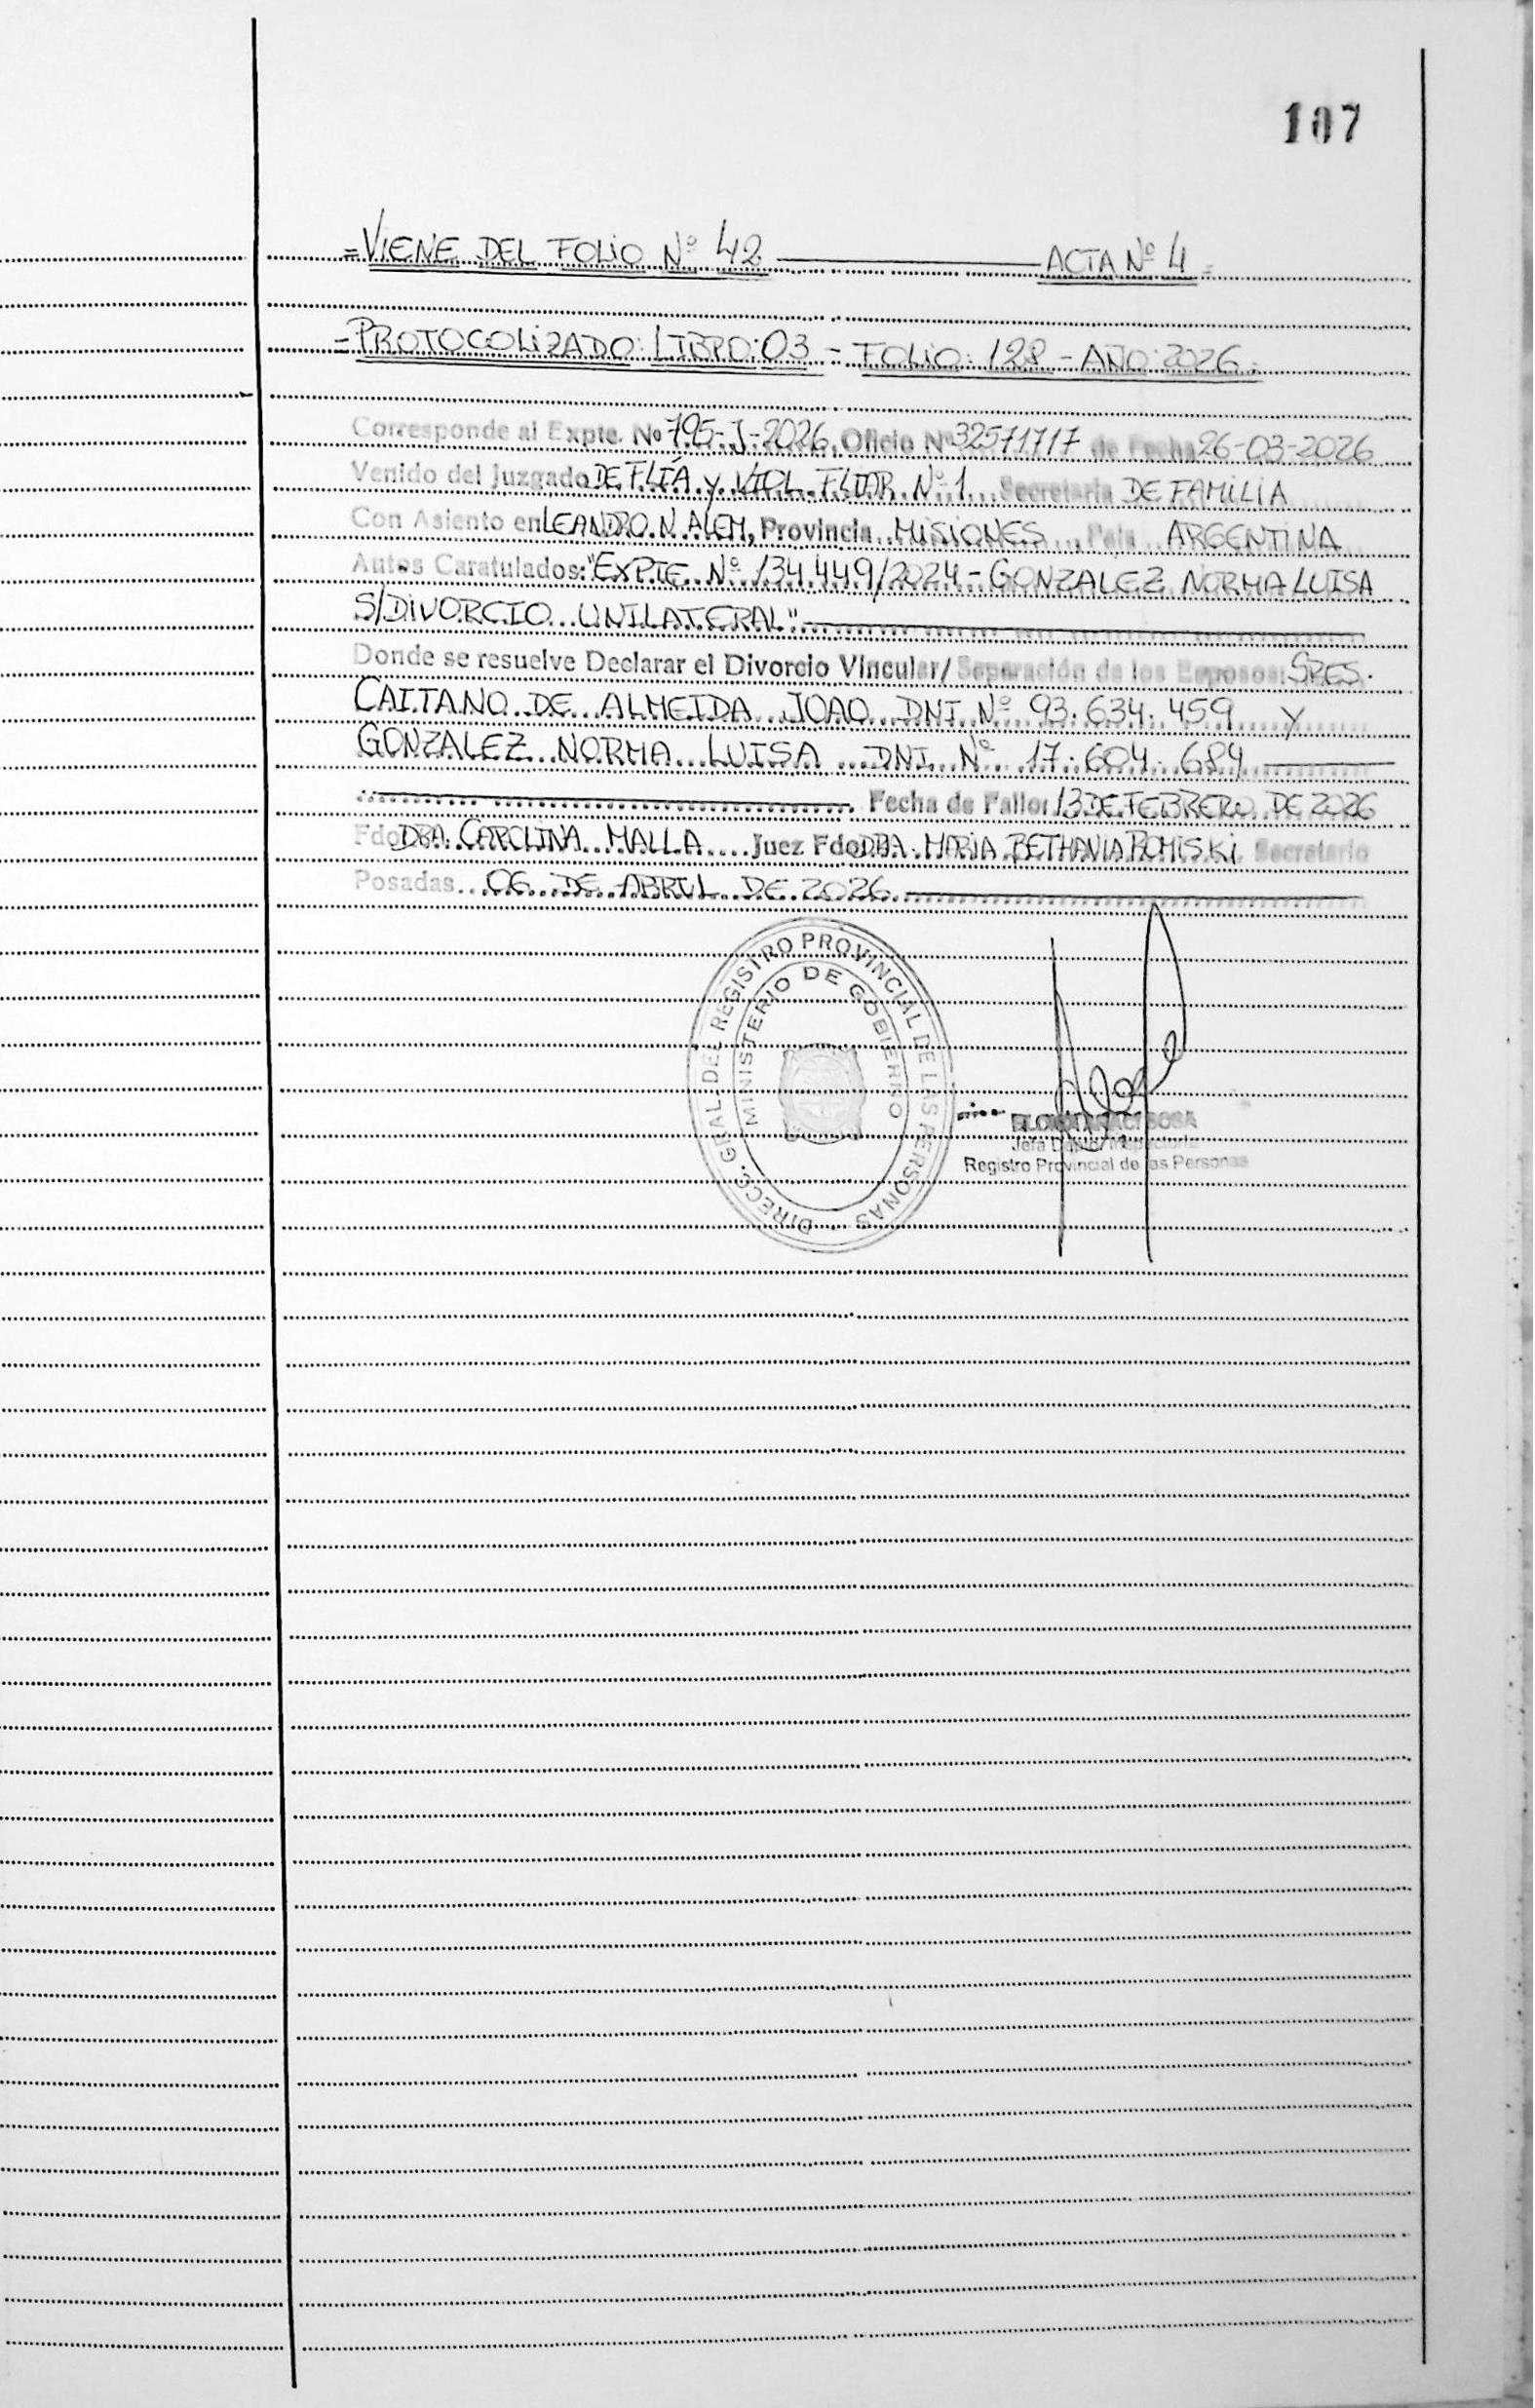 107
=VIENE DEL FOLIO Nº 42 ACTA Nº 4=
=PROTOCOLIZADO: LIBRO: 03 - FOLIO: 128 - AÑO: 2026.
Corresponde al Expte. Nº 795-J-2026, Oficio Nº 32571717 de Fecha 26-03-2026
Venido del Juzgado DE FLÍA y VIOL. FLIAR. Nº 1 Secretaria DE FAMILIA
Con Asiento en LEANDRO. N. ALEM, Provincia MISIONES, Pais ARGENTINA
Autos Caratulados: "EXPTE. Nº 134.449/2024 - GONZALEZ NORMA LUISA
S/DIVORCIO UNILATERAL".
Donde se resuelve Declarar el Divorcio Vincular/ Separación de los Esposos: SRES.
CAITANO DE ALMEIDA JOAO DNI Nº 93.634.459 y
GONZALEZ NORMA LUISA DNI Nº 17.604.684
Fecha de Fallo: 13 DE FEBRERO DE 2026
Fdo DRA. CAROLINA MALLA Juez Fdo DRA. MARIA BETHANIA ROMISKI Secretario
Posadas 06 DE ABRIL DE 2026.
DIRECC. GRAL. DEL REGISTRO PROVINCIAL DE LAS PERSONAS
MINISTERIO DE GOBIERNO
SOSA
Jefa Dpto. Inspectoría
Registro Provincial de las Personas